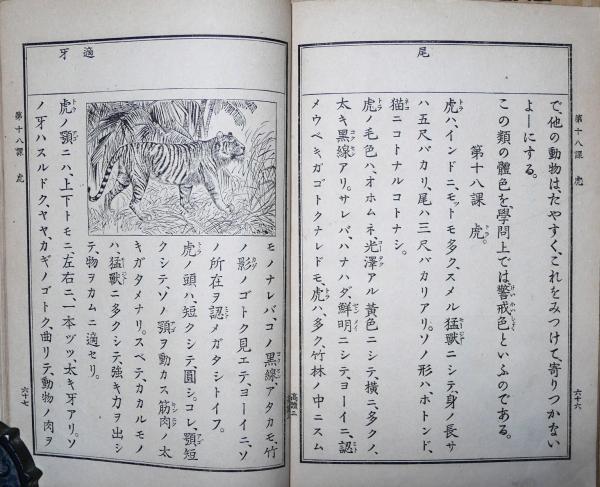 尾
第十八課 虎
で、他の動物は、たやすく、これをみつけて、寄りつかない
よーにする。
この類の體色を、學問上では、警戒色といふのである。
第十八課 虎。
虎ハ、インドニ、モットモ多ク、スメル猛獸ニシテ、身ノ長サ
ハ五尺バカリ、尾ハ三尺バカリアリ。ソノ形ハホトンド、
猫ニコトナルコトナシ。
虎ノ毛色ハ、オホムネ光澤アル黃色ニシテ、橫ニ、多クノ、
太キ黑線アリ。サレバ、ハナハダ、鮮明ニシテ、ヨーイニ、認
メウベキガゴトクナレドモ、虎ハ、多ク、竹林ノ中ニスム
六十六
適 牙
モノナレバ、ソノ黑線アタカモ、竹
ノ影ノゴトク見エテ、ヨーイニ、ソ
ノ所在ヲ認メガタシトイフ。
虎ノ頭ハ、短クシテ、圓シ。コレ、顎短
クシテ、ソノ顎ヲ動カス筋肉ノ太
キガタメナリ。スベテ、カカルモノ
ハ、猛獸ニ多クシテ、強キ力ヲ出シ
テ、物ヲカムニ適セリ。
虎ノ顎ニハ、上下トモニ、左右ニ、一本ヅツ、太キ牙アリ。ソ
ノ牙ハスルドク、ヤヤ、カギノゴトク、曲リテ、動物ノ肉ヲ
第十八課 虎
六十七
高讀三